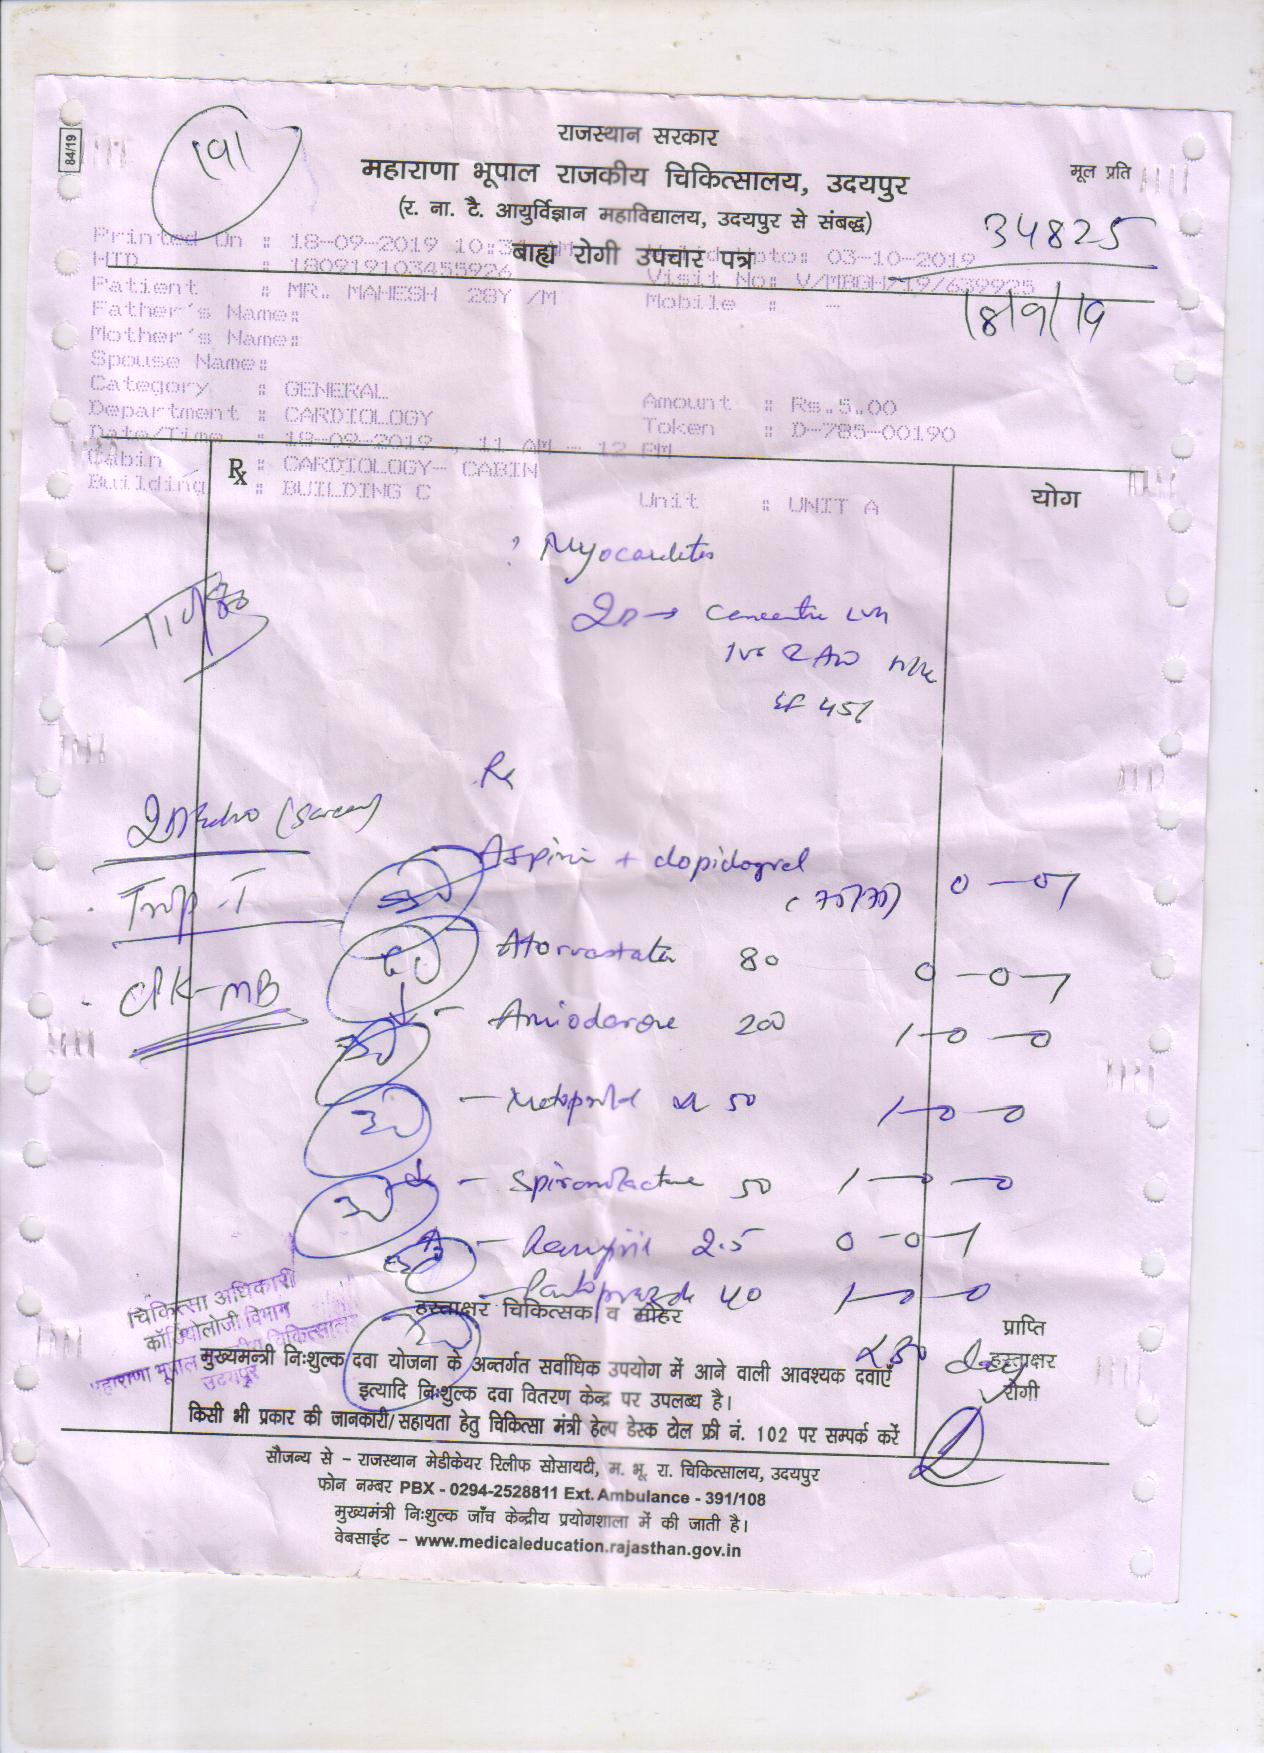 84/19
190
राजस्थान सरकार
महाराणा भूपाल राजकीय चिकित्सालय, उदयपुर
मूल प्रति
(र. ना. टै. आयुर्विज्ञान महाविद्यालय, उदयपुर से संबद्ध)
34825
बाह्य रोगी उपचार पत्र
Printed On : 18-09-2019 10:34 AM Valid Upto: 03-10-2019
HID : 180919103455926 Visit No: V/MBGH/19/639925
Patient : MR. MAHESH 28Y /M Mobile : -
18/9/19
Father's Name:
Mother's Name:
Spouse Name:
Category : GENERAL Amount : Rs.5.00
Department : CARDIOLOGY Token : D-785-00190
Date/Time : 18-09-2019 , 11 AM - 12 PM
Cabin : CARDIOLOGY- CABIN
Building : BUILDING C Unit : UNIT A
Rx
योग
? Myocarditis
2D → Concentric LVH
EF 45%
Rx
2D Echo (Screen)
Aspirin + clopidogrel
(75/75) 0-0-1
Trop-T
Atorvastatin 80 0-0-1
CPK-MB
- Amiodarone 200 1-0-0
- Metoprolol XL 50 1-0-0
- Spironolactone 50 1-0-0
- Ramipril 2.5 0-0-1
- Pantoprazole 40 1-0-0
चिकित्सा अधिकारी
कॉर्डियोलोजी विभाग
महाराणा भूपाल राजकीय चिकित्सालय
उदयपुर
हस्ताक्षर चिकित्सक व मोहर
प्राप्ति
हस्ताक्षर
रोगी
x 30 days
मुख्यमन्त्री निःशुल्क दवा योजना के अन्तर्गत सर्वाधिक उपयोग में आने वाली आवश्यक दवाएँ
इत्यादि निःशुल्क दवा वितरण केन्द्र पर उपलब्ध है।
किसी भी प्रकार की जानकारी/सहायता हेतु चिकित्सा मंत्री हेल्प डेस्क टोल फ्री नं. 102 पर सम्पर्क करें
सौजन्य से - राजस्थान मेडीकेयर रिलीफ सोसायटी, म. भू. रा. चिकित्सालय, उदयपुर
फोन नम्बर PBX - 0294-2528811 Ext. Ambulance - 391/108
मुख्यमंत्री निःशुल्क जाँच केन्द्रीय प्रयोगशाला में की जाती है।
वेबसाईट - www.medicaleducation.rajasthan.gov.in